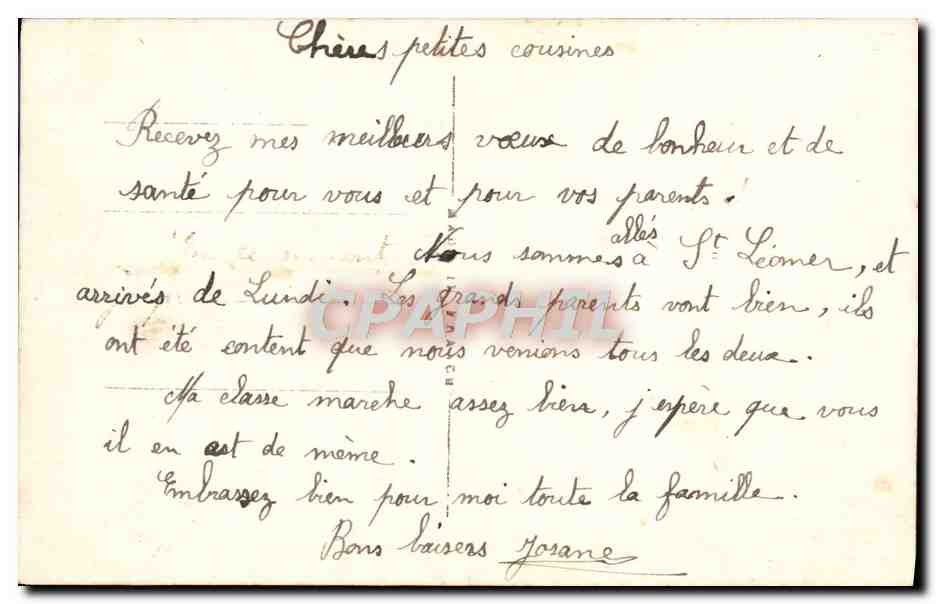 Chères petites cousines
Recevez mes meilleurs vœux de bonheur et de
santé pour vous et pour vos parents.
Nous sommes allés à St Léomer, et
arrivés de Lundi. Les grands parents vont bien, ils
ont été content que nous venions tous les deux.
Ma classe marche assez bien, j'espère que vous
il en est de même.
Embrassez bien pour moi toute la famille.
Bons baisers Josane
CPAPHIL